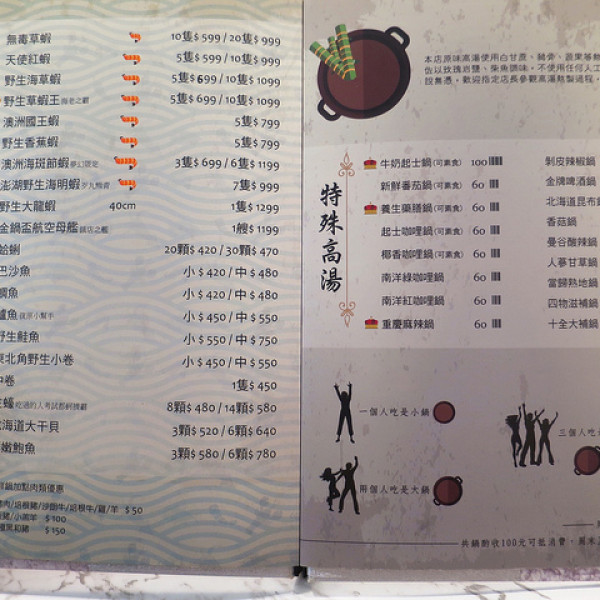 無毒草蝦 10隻$ 599 / 20隻$ 999
天使紅蝦 5隻$ 599 / 10隻$ 999
野生海草蝦 5隻$ 699 / 10隻$ 1099
野生草蝦王 海老之霸 5隻$ 699 / 10隻$ 1099
澳洲國王蝦 5隻$ 799
野生香蕉蝦 5隻$ 799
澳洲海斑節蝦 夢幻限定 3隻$ 699 / 6隻$ 1199
澎湖野生海明蝦 7隻$ 999
野生大龍蝦 40cm 1隻$ 1299
金鍋盃航空母艦 鎮店之艦 1艘$ 1199
蛤蜊 20顆$ 420 / 30顆$ 470
巴沙魚 小 $ 420 / 中 $ 480
鯛魚 小 $ 420 / 中 $ 480
鱸魚 復原小幫手 小 $ 450 / 中 $ 550
野生鮭魚 小 $ 550 / 中 $ 750
東北角野生小卷 小 $ 450 / 中 $ 550
中卷 1隻$ 450
吃過的人考試都例摃龜 8顆$ 480 / 14顆$ 580
北海道大干貝 3顆$ 520 / 6顆$ 640
嫩鮑魚 3顆$ 580 / 6顆$ 780
鍋加點肉類優惠
培根牛/雞/羊 $ 50
$ 100
黑和豬 $ 150
本店原味高湯使用白甘蔗、豬骨、蔬果等熬
佐以玫瑰岩鹽、柴魚調味,不使用任何人工
設無憑,歡迎指定店長參觀高湯熬製過程,
特殊高湯
牛奶起士鍋(可素食) 100
新鮮番茄鍋(可素食) 60
養生藥膳鍋(可素食) 60
起士咖哩鍋(可素食) 60
椰香咖哩鍋(可素食) 60
南洋綠咖哩鍋 60
南洋紅咖哩鍋 60
重慶麻辣鍋 60
剝皮辣椒鍋
金牌啤酒鍋
北海道昆布鍋
香菇鍋
曼谷酸辣鍋
人蔘甘草鍋
當歸熟地鍋
四物滋補鍋
十全大補鍋
一個人吃是小鍋
兩個人吃是大鍋
三個人
共鍋酌收100元可抵消費